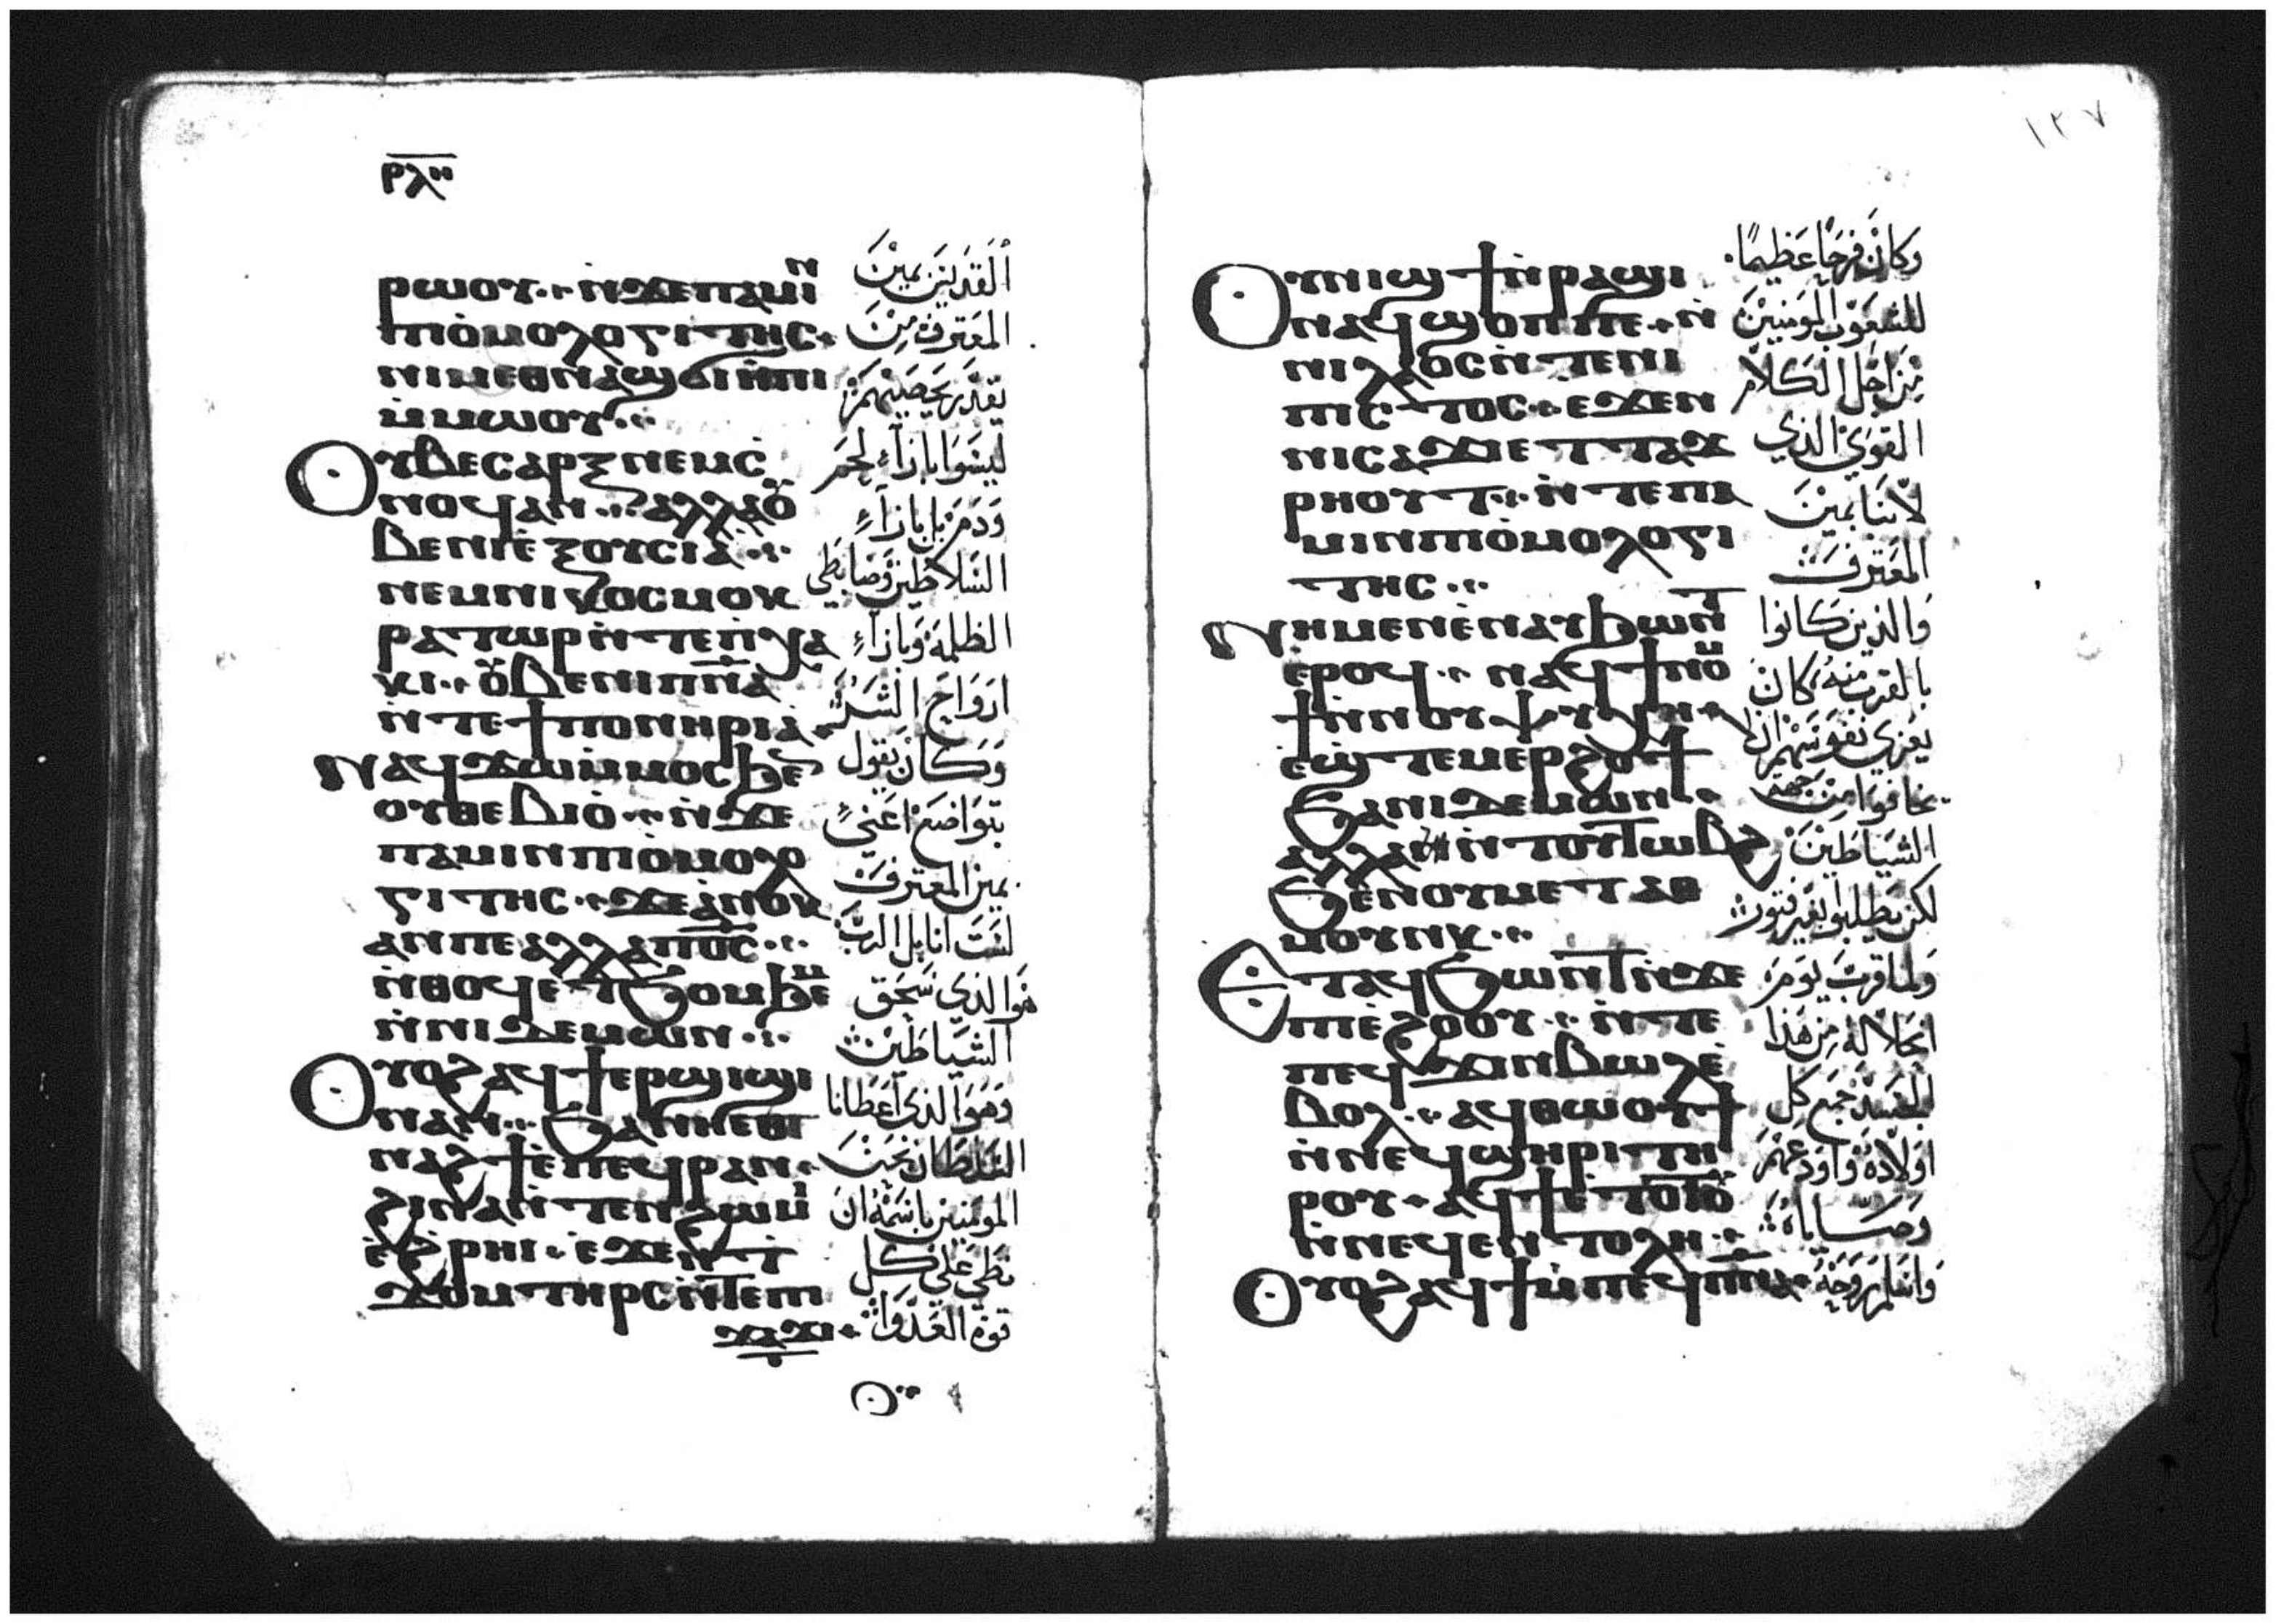 ⲣⲗ
ⲣⲱⲟⲩ ⲛ̀ϫⲉⲡⲁⲙⲓⲛ
ⲡⲓⲟ̀ⲙⲟⲗⲟⲅⲓⲧⲏⲥ
ⲛⲓⲙⲉⲑⲛⲁϣϭⲓⲏ̀ⲡⲓ
ⲙ̀ⲙⲱⲟⲩ
ⲟⲩⲃⲉⲥⲁⲣⲝ ⲛⲉⲙⲥ̀
ⲛⲟϥⲁⲛ ⲁⲗⲗⲁⲟⲩ
ⲃⲉⲛⲓⲉ̀ⲝⲟⲩⲥⲓⲁ
ⲛⲉⲙⲛⲓⲕⲟⲥⲙⲟⲕ
ⲣⲁⲧⲱⲣⲛ̀ⲧⲉⲡⲭⲁ
ⲕⲓ ⲟⲩⲃⲉⲛⲓⲡ̅ⲛ̅ⲁ
ⲛ̀ⲧⲉϯⲡⲟⲛⲏⲣⲓⲁ
ⲛⲁϥϫⲱⲙ̀ⲙⲟⲥϧⲉⲛ
ⲟⲩⲑⲉⲃⲓⲟ̀ ⲛ̀ϫⲉ
ⲡⲁⲙⲓⲛⲡⲓⲟ̀ⲙⲟⲗⲟ
ⲅⲓⲧⲏⲥ ϫⲉⲁ̀ⲛⲟⲕ
ⲁⲛⲡⲉⲁⲗⲗⲁⲡ̅ⲟ̅ⲥ̅
ⲛ̀ⲑⲟϥⲉⲧϧⲟⲙϧⲉⲙ
ⲛ̀ⲛⲓⲇⲉⲙⲱⲛ
ⲟⲩⲟϩⲁϥϯⲉⲣϣⲓϣⲓ
ⲛⲁⲛ ϧⲁⲛⲏⲉⲑ
ⲛⲁϩϯⲉ̀ⲡⲉϥⲣⲁⲛ
ϩⲓⲛⲁⲛ̀ⲧⲉⲛϩⲱⲙⲓ
ⲉ̀ϩ̀ⲣⲏⲓ ⲉ̀ϫⲉⲛϯ
ϫⲟⲙⲧⲏⲣⲥⲛ̀ⲧⲉⲡⲓ
ϫⲁϫⲓ
ⲟ
القديسين يمين
المعترف من
يقدر يحصيهم
ليسوا بازاء لحم
ودم بل بازاء
السلاطين وضابطي
الظلمة وبازاء
ارواح الشر
وكان يقول
بتواضع اعني
يمين المعترف
لست انا بل الرب
هو الذي سحق
الشياطين
وهو الذي اعطانا
السلطان نحن
المومنين باسمه ان
نطي علي كل
قوة العدو
١٣٧
ⲟⲩⲛⲓϣϯⲛ̀ⲣⲁϣⲓ
ⲛⲁϥϣⲟⲡⲡⲉ ⲛ̀
ⲛⲓⲗⲁⲟⲥⲛ̀ⲧⲉⲛⲓ
ⲡⲓⲥⲧⲟⲥ ⲉϫⲉⲛ
ⲛⲓⲥⲁϫⲓⲉⲧⲧⲁϫ
ⲣⲏⲟⲩⲧ ⲛ̀ⲧⲉⲡⲁ
ⲙⲓⲛⲡⲓⲟ̀ⲙⲟⲗⲟⲅⲓ
ⲧⲏⲥ
ⲛⲏⲙⲉⲛⲉ̀ⲛⲁⲩϧⲱⲛⲧ
ⲉ̀ⲣⲟϥ ⲛⲁϥϯⲛⲟⲙ
ϯⲛ̀ⲛⲟⲩⲯⲩⲭⲏ
ⲉϣ̀ⲧⲉⲙⲉⲣϩⲟϯ
ϧⲁⲛⲓⲇⲉⲙⲱⲛ
ⲁⲗⲗⲁ ⲛ̀ⲧⲟⲩⲧⲱⲃϩ
ϧⲉⲛⲟⲩⲙⲉⲧⲁⲑ
ⲙⲟⲩⲛⲕ
ⲉⲧⲁϥϧⲱⲛⲧⲛ̀ϫⲉ
ⲡⲓⲉ̀ϩⲟⲟⲩ ⲛ̀ⲧⲉ
ⲡⲉϥϫⲓⲛⲃⲱⲗⲉ̀
ⲃⲟⲗ ⲁϥⲑⲱⲟⲩϯ
ⲛ̀ⲛⲉϥϣⲏⲣⲓⲧⲏ
ⲣⲟⲩ ⲁϥϯⲉ̀ⲧⲟⲧⲟⲩ
ⲛ̀ⲛⲉϥⲉⲛⲧⲟⲗⲏ
ⲟⲩⲟϩⲁϥϯⲙ̀ⲡⲉϥⲡ̅ⲛ̅ⲁ
وكان فرحا عظيما
للشعوب المومنين
من اجل الكلام
القوي الذي
لابينا يمين
المعترف
والذين كانوا
بالقرب منه كان
يعزي نفوسهم ان لا
يخافوا من جهة
الشياطين
لكن يطلبوا بغير فتور
ولما قرب يوم
انحلاله من هذا
الجسد جمع كل
اولاده واودعهم
وصاياه
واسلم روحه